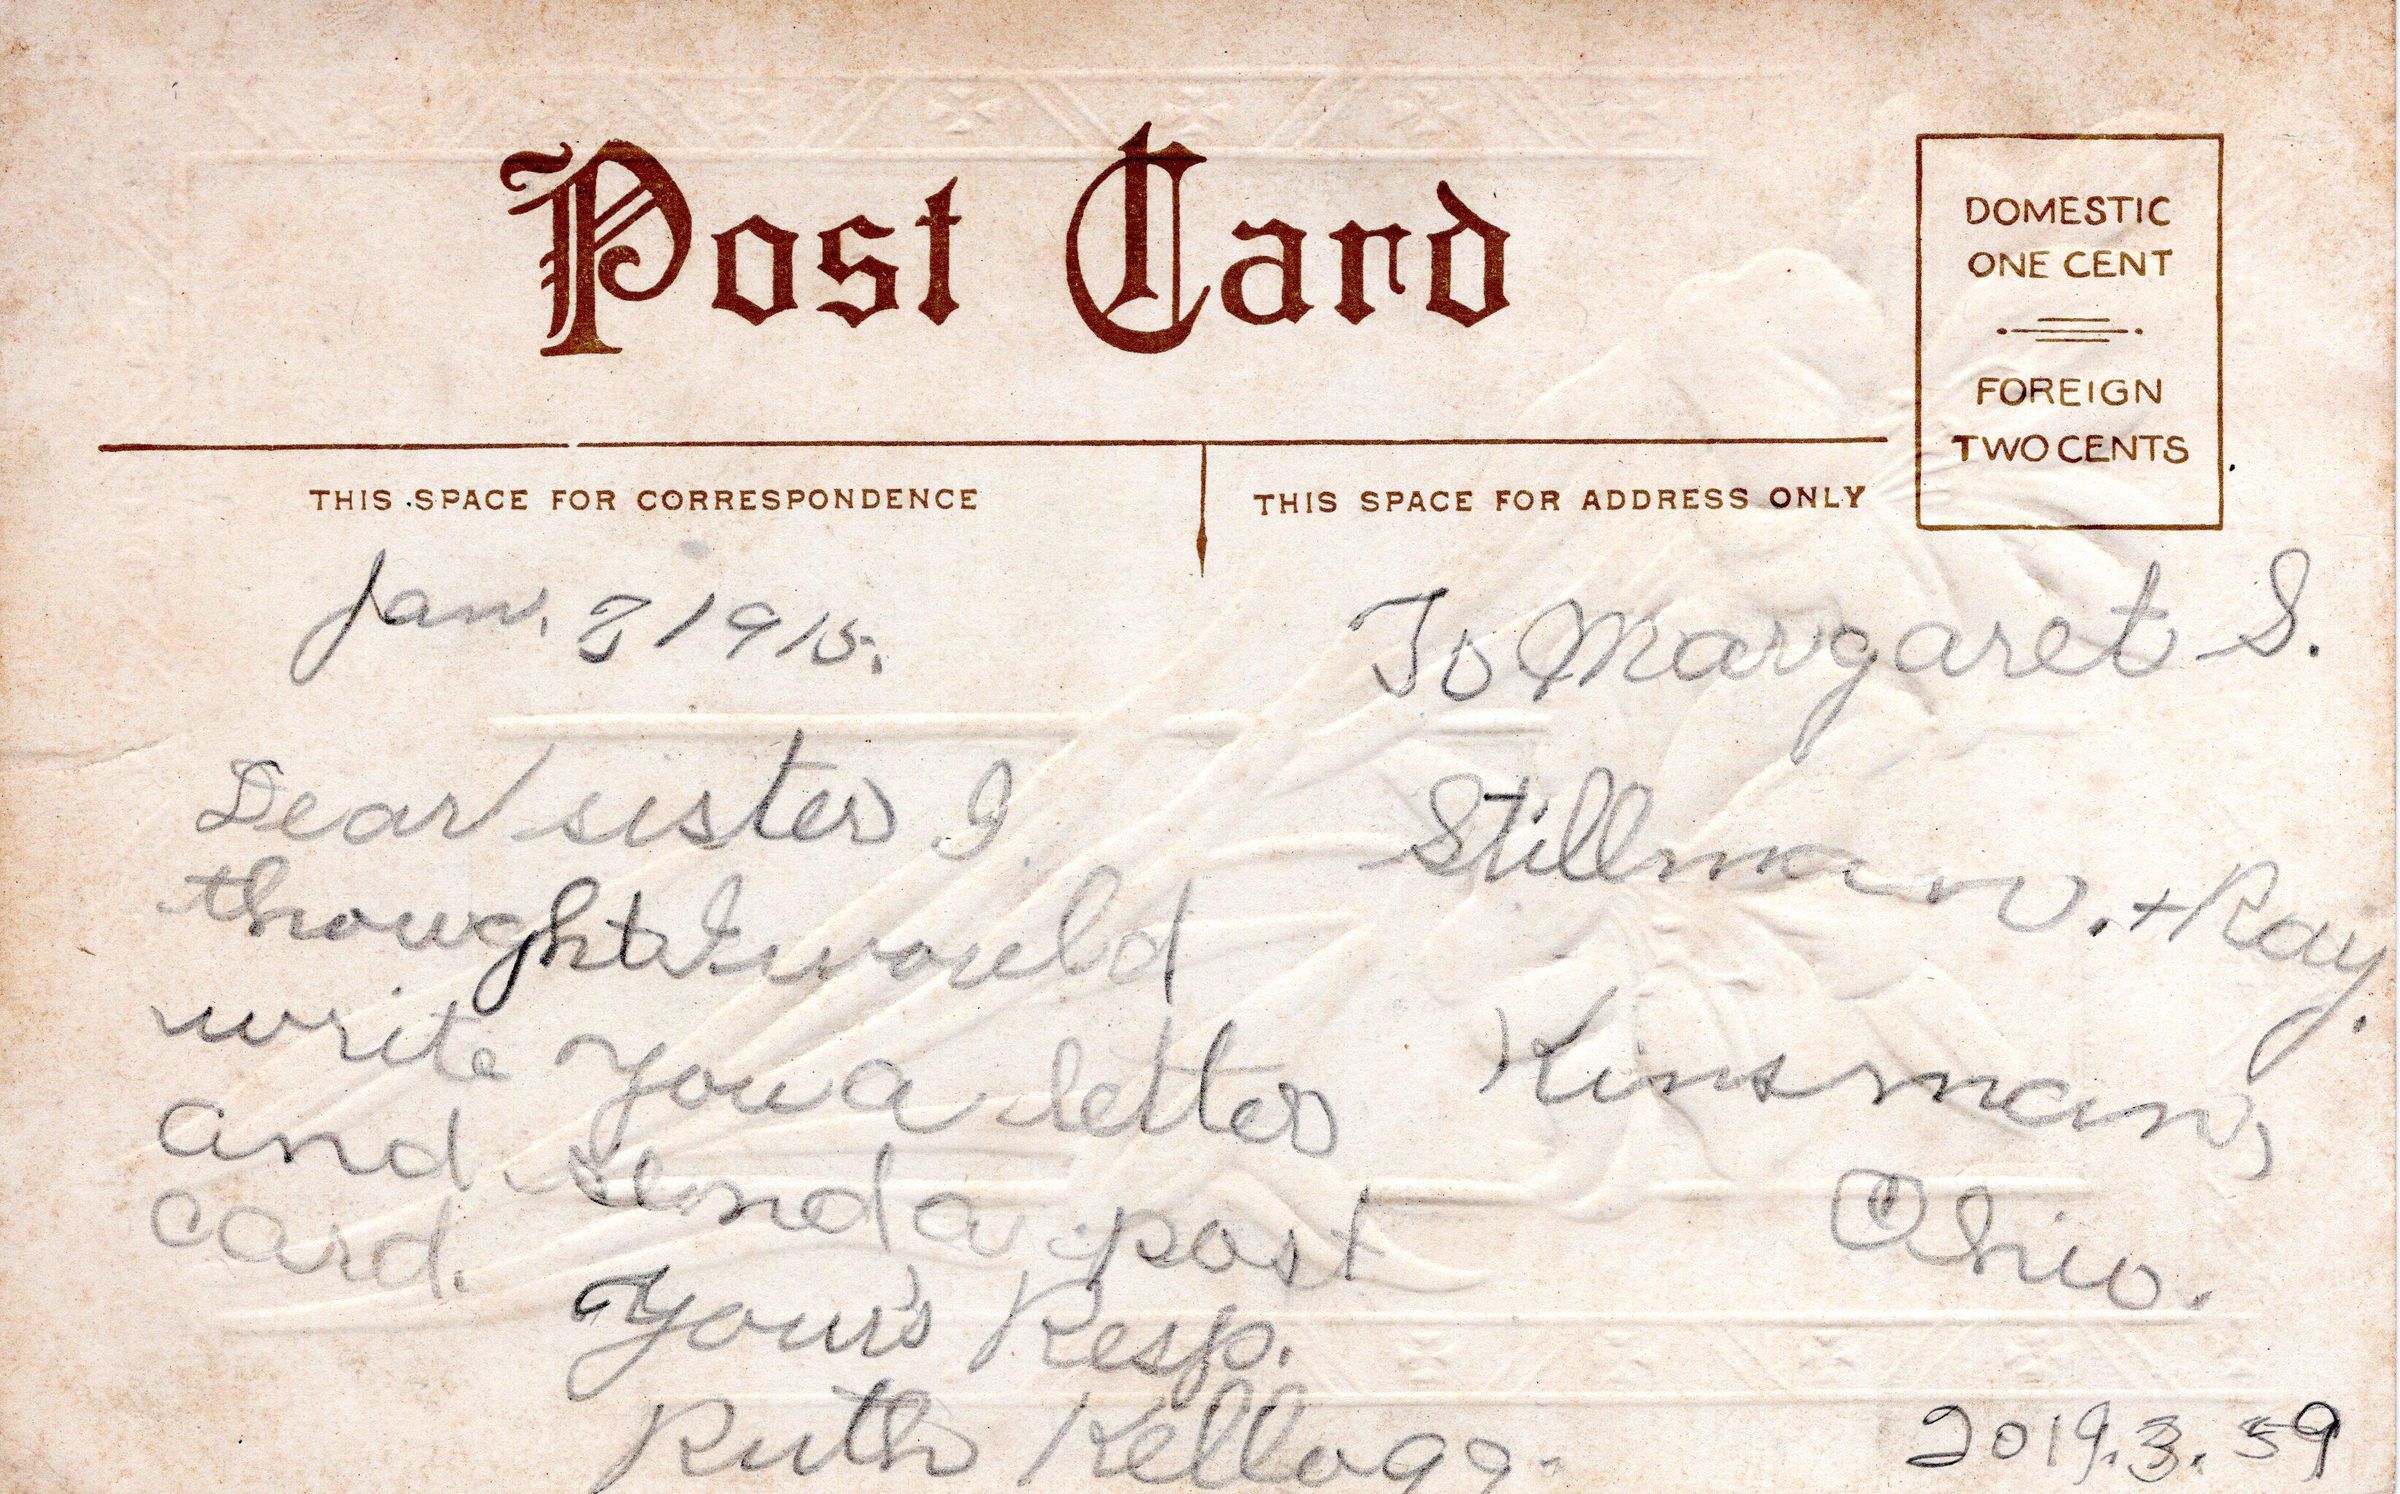 Post Card
DOMESTIC
ONE CENT
FOREIGN
TWO CENTS
THIS SPACE FOR CORRESPONDENCE
THIS SPACE FOR ADDRESS ONLY
Jan. 1915.
Dear sister I
thought I would
write you a letter
and send a post
card.
Your's Resp.
Ruth Kellogg.
To Margaret S.
Stillman. + Ray.
Kinsman,
Ohio.
2019.3.59